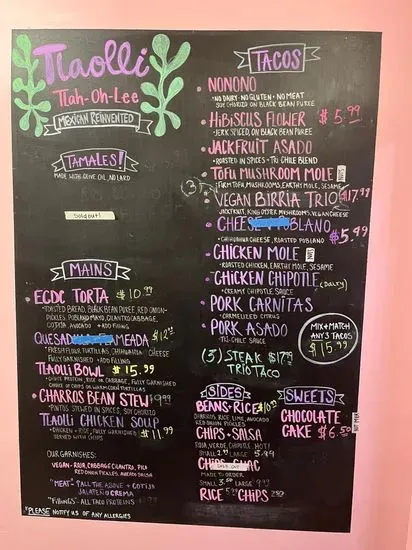 Tlaolli
Tlah-Oh-Lee
MEXICAN REINVENTED
TAMALES!
MADE WITH OLIVE OIL, NO LARD
Sold out!
MAINS
ECDC TORTA $10.99
TOASTED BREAD, BLACK BEAN PUREE, RED ONION-
PICKLES, POBLANO MAYO, CILANTRO, CABBAGE,
COTIJA, AVOCADO + ADD FILLING
QUESAD AMEADA $12.99
FRESH FLOUR TORTILLAS, CHIHUAHUA CHEESE
FULLY GARNISHED + ADD FILLING
TLAOLLI BOWL $15.99
CHOICE PROTEIN, RICE OR CABBAGE, FULLY GARNISHED
CHOICE OF CHIPS OR WARM CORN TORTILLAS
CHARROS BEAN STEW $9.99
PINTOS STEWED IN SPICES, SOY CHORIZO
TLAOLLI CHICKEN SOUP
CHICKEN + RICE, FULLY GARNISHED $11.99
SERVED WITH CHIPS
OUR GARNISHES:
VEGAN - ROJA, CABBAGE CILANTRO, PICO
RED ONION PICKLES, AVOCADO SALSA
"MEAT" - ALL THE ABOVE + COTIJA
JALAPEÑO CREMA
"FILLINGS" - ALL TACO PROTEINS
*PLEASE NOTIFY US OF ANY ALLERGIES
TACOS
NONONO
NO DAIRY · NO GLUTEN · NO MEAT
SOY CHORIZO ON BLACK BEAN PUREE
HIBISCUS FLOWER $5.99
JERK SPICED, ON BLACK BEAN PUREE
JACKFRUIT ASADO
ROASTED IN SPICES + TLC CHILE BLEND
TOFU MUSHROOM MOLE NUTS
FIRM TOFU, MUSHROOMS, EARTHY MOLE, SESAME
(3) VEGAN BIRRIA TRIO $17.99
JACKFRUIT, KING OYSTER MUSHROOMS, VEGAN CHEESE
CHEES BLANO $5.49
CHIHUAHUA CHEESE, ROASTED POBLANO
CHICKEN MOLE NUTS
ROASTED CHICKEN, EARTHY MOLE, SESAME
CHICKEN CHIPOTLE (Dairy)
CREAMY CHIPOTLE SAUCE
PORK CARNITAS
CARAMELIZED CITRUS
PORK ASADO
TLC-CHILE SAUCE
MIX + MATCH
ANY 3 TACOS
$15.99
(3) STEAK $17.99
TRIO TACO
SIDES
BEANS + RICE $10.99
CHARROS, RICE, LIME, AVOCADO
RED ONION PICKLES
CHIPS + SALSA
ROJA, VERDE, CHIPOTLE, HOT!
SMALL 2.99 LARGE 5.49
CHIPS GUAC
Sold out
MADE TO ORDER
SMALL 3.50 LARGE 9.99
RICE 5.99 CHIPS 2.99
SWEETS
CHOCOLATE
CAKE $6.50